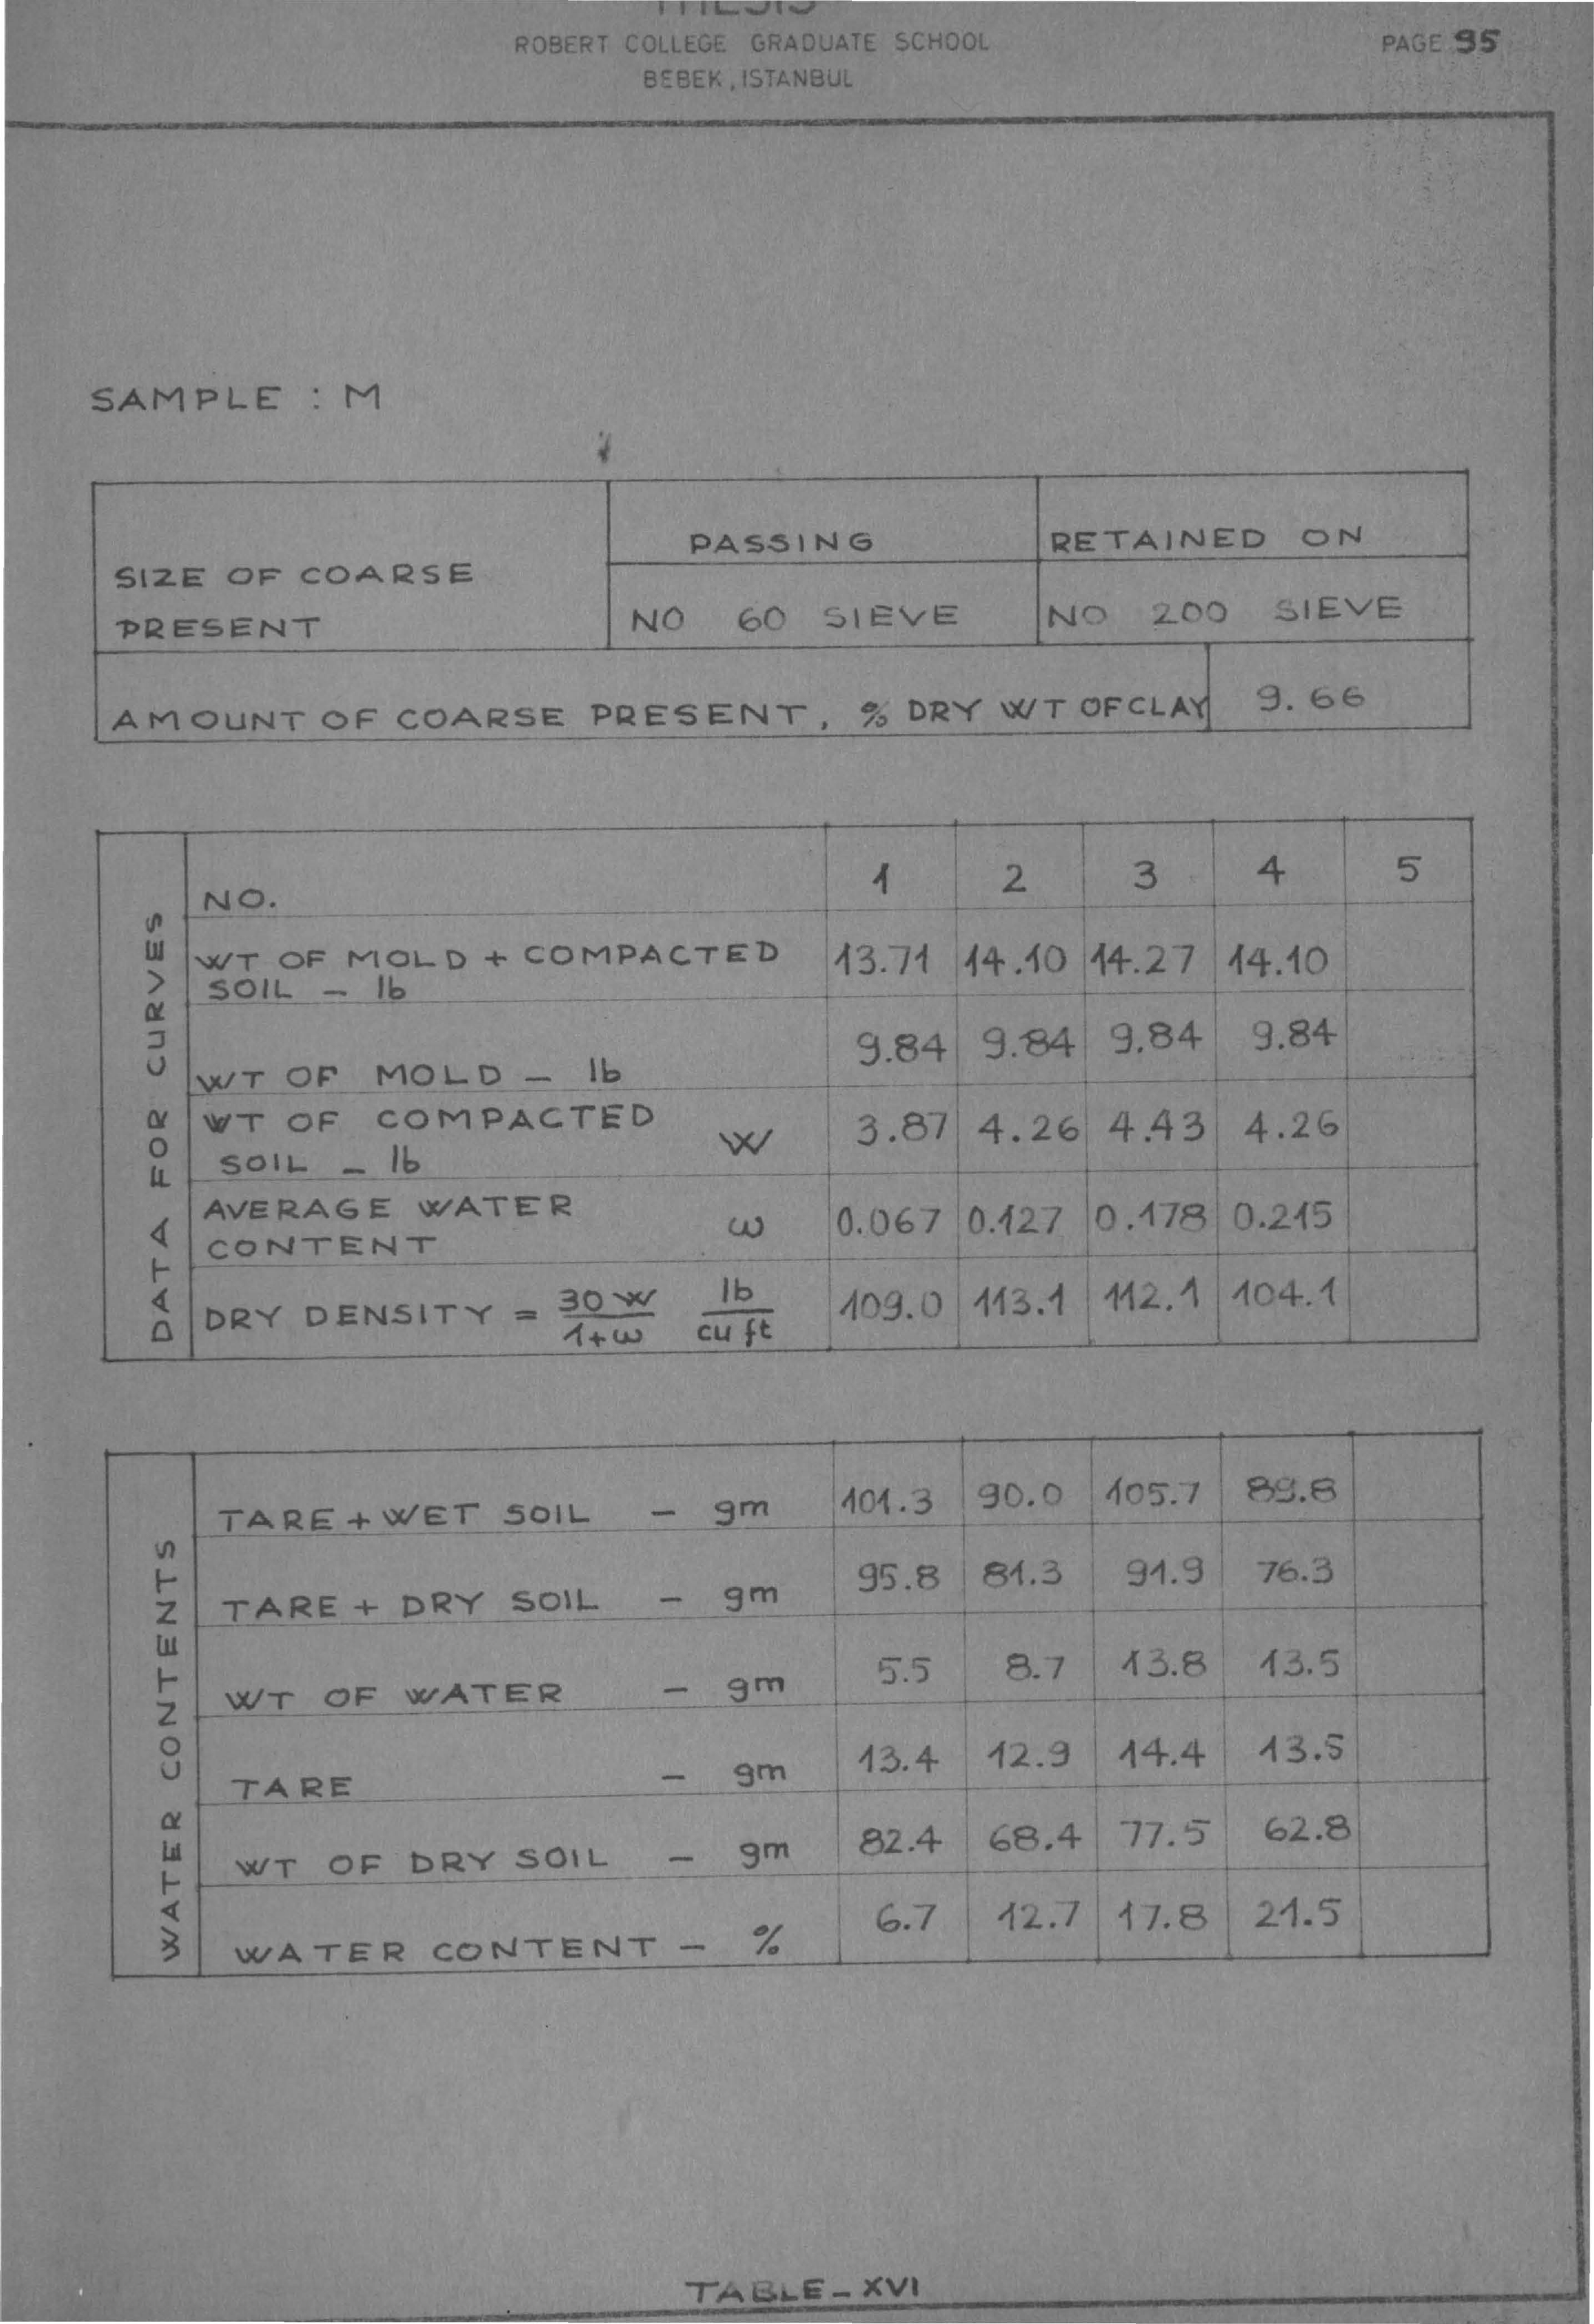 THESIS
ROBERT COLLEGE GRADUATE SCHOOL
PAGE 95
BEBEK, ISTANBUL
SAMPLE : M
SIZE OF COARSE PRESENT
PASSING
RETAINED ON
NO 60 SIEVE
NO 200 SIEVE
AMOUNT OF COARSE PRESENT, % DRY WT OF CLAY 9.66
DATA FOR CURVES
NO. 1 2 3 4 5
WT OF MOLD + COMPACTED SOIL - lb 13.71 14.10 14.27 14.10
WT OF MOLD - lb 9.84 9.84 9.84 9.84
WT OF COMPACTED SOIL - lb W 3.87 4.26 4.43 4.26
AVERAGE WATER CONTENT ω 0.067 0.127 0.178 0.215
DRY DENSITY = 30 W / 1+ω lb / cu ft 109.0 113.1 112.1 104.1
WATER CONTENTS
TARE + WET SOIL - gm 101.3 90.0 105.7 89.8
TARE + DRY SOIL - gm 95.8 81.3 91.9 76.3
WT OF WATER - gm 5.5 8.7 13.8 13.5
TARE - gm 13.4 12.9 14.4 13.5
WT OF DRY SOIL - gm 82.4 68.4 77.5 62.8
WATER CONTENT - % 6.7 12.7 17.8 21.5
TABLE - XVI